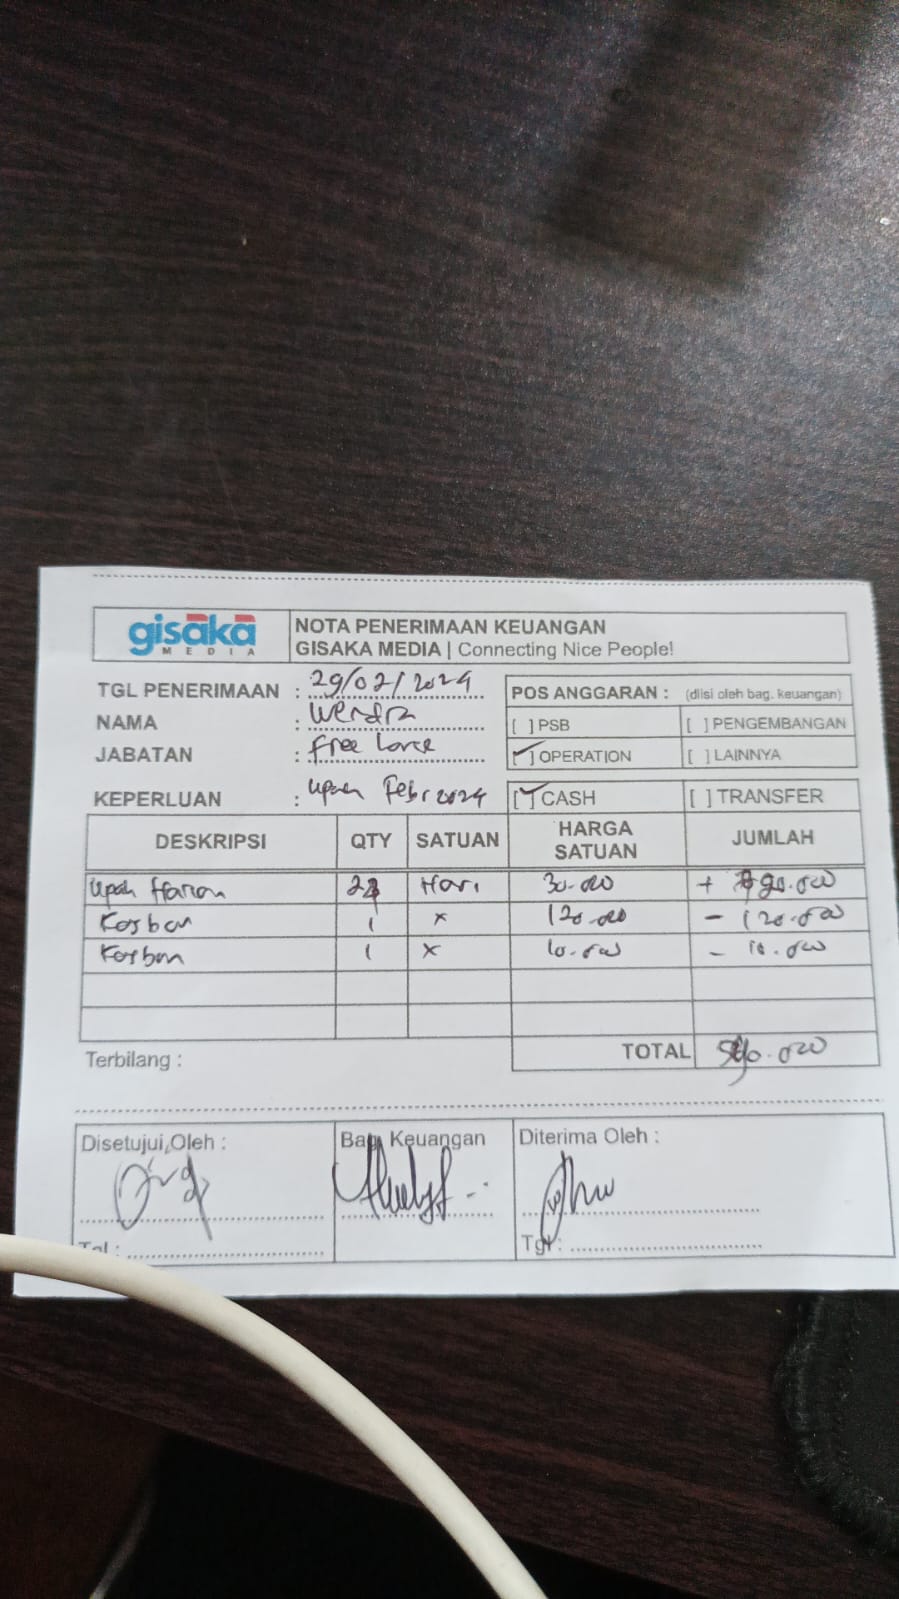 gisaka
MEDIA
NOTA PENERIMAAN KEUANGAN
GISAKA MEDIA | Connecting Nice People!
TGL PENERIMAAN : 29/02/2024
NAMA :
JABATAN : free lance
KEPERLUAN : upah Febr 2024
POS ANGGARAN : (diisi oleh bag. keuangan)
[ ] PSB [ ] PENGEMBANGAN
[✓] OPERATION [ ] LAINNYA
[✓] CASH [ ] TRANSFER
DESKRIPSI QTY SATUAN HARGA SATUAN JUMLAH
Upah Harian Hari 30.000 +
Kasbon 1 x 120.000 - 120.000
Kasbon 1 x 10.000 - 10.000
Terbilang :
TOTAL
Disetujui Oleh : Bag. Keuangan Diterima Oleh :
Tgl : Tgl :